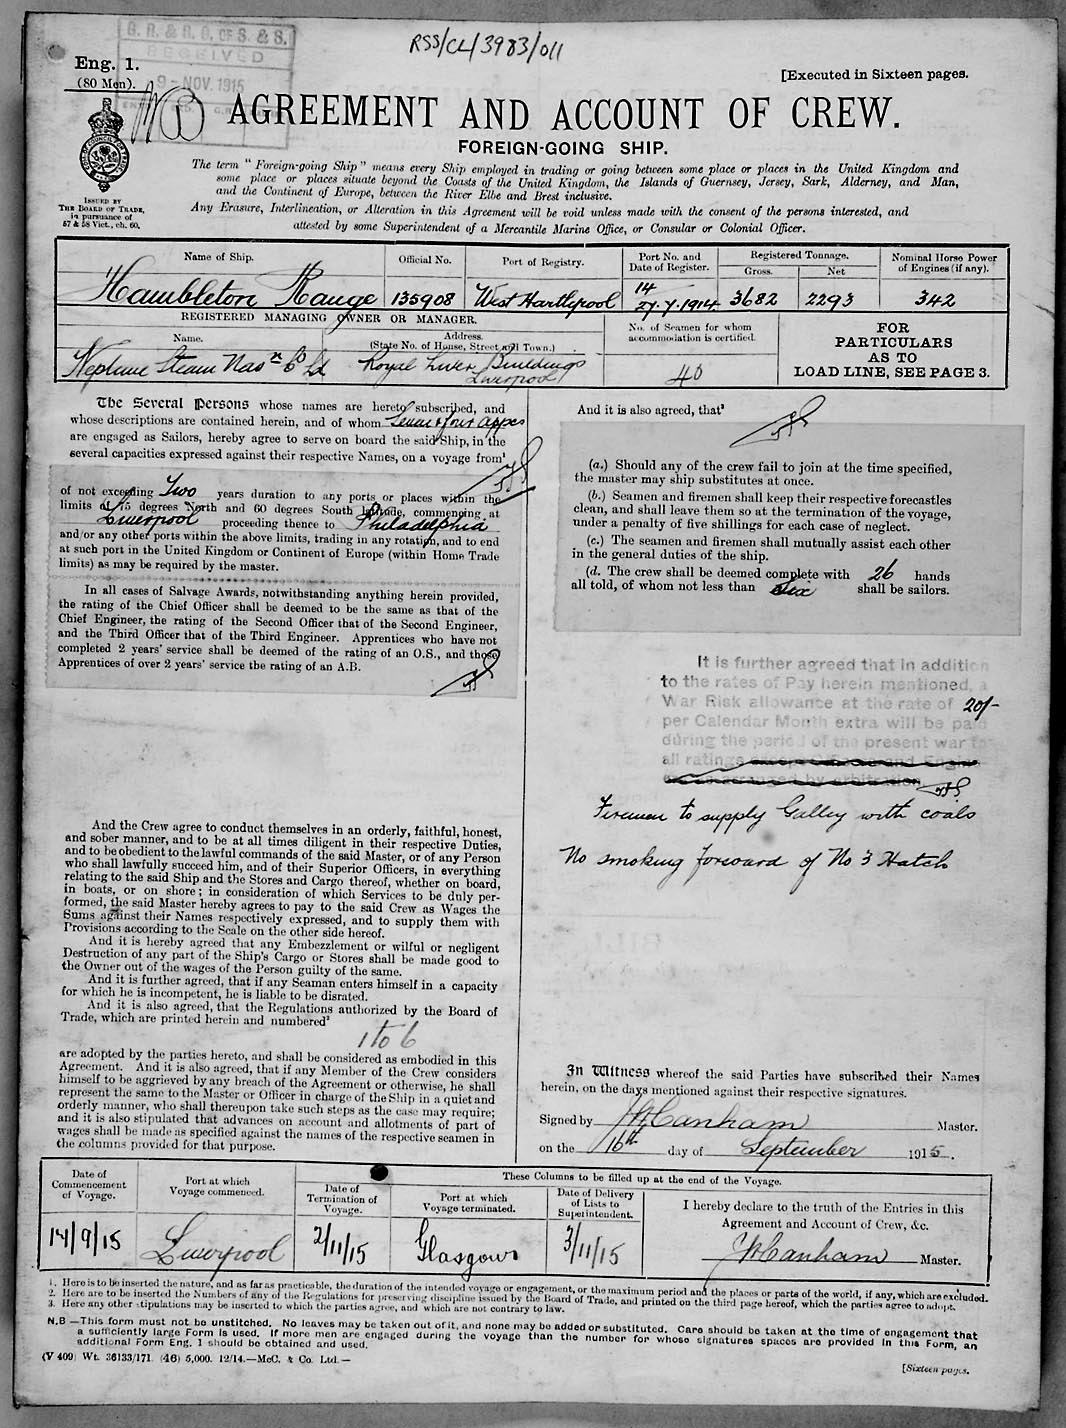 RSS/CL/3983/011
G. R. & R. O. OF S. & S.
RECEIVED
9 - NOV. 1915
Eng. 1.
(80 Men).
[Executed in Sixteen pages.
AGREEMENT AND ACCOUNT OF CREW.
FOREIGN-GOING SHIP.
ISSUED BY
THE BOARD OF TRADE,
in pursuance of
57 & 58 Vict., ch. 60.
The term "Foreign-going Ship" means every Ship employed in trading or going between some place or places in the United Kingdom and
some place or places situate beyond the Coasts of the United Kingdom, the Islands of Guernsey, Jersey, Sark, Alderney, and Man,
and the Continent of Europe, between the River Elbe and Brest inclusive.
Any Erasure, Interlineation, or Alteration in this Agreement will be void unless made with the consent of the persons interested, and
attested by some Superintendent of a Mercantile Marine Office, or Consular or Colonial Officer.
Name of Ship.
Official No.
Port of Registry.
Port No. and
Date of Register.
Registered Tonnage.
Gross.
Net
Nominal Horse Power
of Engines (if any).
Hambleton Range
135908
West Hartlepool
14
27.7.1914
3682
2293
342
REGISTERED MANAGING OWNER OR MANAGER.
Name.
Address.
(State No. of House, Street and Town.)
No. of Seamen for whom
accommodation is certified.
FOR
PARTICULARS
AS TO
LOAD LINE, SEE PAGE 3.
Neptune Steam Navn Co Ld
Royal Liver Buildings
Liverpool
40
The Several Persons whose names are hereto subscribed, and
whose descriptions are contained herein, and of whom Seven & four Appes
are engaged as Sailors, hereby agree to serve on board the said Ship, in the
several capacities expressed against their respective Names, on a voyage from¹
of not exceeding Two years duration to any ports or places within the
limits of 75 degrees North and 60 degrees South latitude, commencing at
Liverpool proceeding thence to Philadelphia
and/or any other ports within the above limits, trading in any rotation, and to end
at such port in the United Kingdom or Continent of Europe (within Home Trade
limits) as may be required by the master.
In all cases of Salvage Awards, notwithstanding anything herein provided,
the rating of the Chief Officer shall be deemed to be the same as that of the
Chief Engineer, the rating of the Second Officer that of the Second Engineer,
and the Third Officer that of the Third Engineer. Apprentices who have not
completed 2 years' service shall be deemed of the rating of an O.S., and those
Apprentices of over 2 years' service the rating of an A.B.
And the Crew agree to conduct themselves in an orderly, faithful, honest,
and sober manner, and to be at all times diligent in their respective Duties,
and to be obedient to the lawful commands of the said Master, or of any Person
who shall lawfully succeed him, and of their Superior Officers, in everything
relating to the said Ship and the Stores and Cargo thereof, whether on board,
in boats, or on shore; in consideration of which Services to be duly per-
formed, the said Master hereby agrees to pay to the said Crew as Wages the
Sums against their Names respectively expressed, and to supply them with
Provisions according to the Scale on the other side hereof.
And it is hereby agreed that any Embezzlement or wilful or negligent
Destruction of any part of the Ship's Cargo or Stores shall be made good to
the Owner out of the wages of the Person guilty of the same.
And it is further agreed, that if any Seaman enters himself in a capacity
for which he is incompetent, he is liable to be disrated.
And it is also agreed, that the Regulations authorized by the Board of
Trade, which are printed herein and numbered²
1 to 6
are adopted by the parties hereto, and shall be considered as embodied in this
Agreement. And it is also agreed, that if any Member of the Crew considers
himself to be aggrieved by any breach of the Agreement or otherwise, he shall
represent the same to the Master or Officer in charge of the Ship in a quiet and
orderly manner, who shall thereupon take such steps as the case may require;
and it is also stipulated that advances on account and allotments of part of
wages shall be made as specified against the names of the respective seamen in
the columns provided for that purpose.
And it is also agreed, that³
(a.) Should any of the crew fail to join at the time specified,
the master may ship substitutes at once.
(b.) Seamen and firemen shall keep their respective forecastles
clean, and shall leave them so at the termination of the voyage,
under a penalty of five shillings for each case of neglect.
(c.) The seamen and firemen shall mutually assist each other
in the general duties of the ship.
(d. The crew shall be deemed complete with 26 hands
all told, of whom not less than Six shall be sailors.
It is further agreed that in addition
to the rates of Pay herein mentioned, a
War Risk allowance at the rate of 20/-
per Calendar Month extra will be paid
during the period of the present war to
all ratings except
arranged by arbitration
Firemen to supply Galley with coals
No smoking forward of No 3 Hatch
In Witness whereof the said Parties have subscribed their Names
herein, on the days mentioned against their respective signatures.
Signed by Canham Master.
on the 16th day of September 1915.
Date of
Commencement
of Voyage.
Port at which
Voyage commenced.
These Columns to be filled up at the end of the Voyage.
Date of
Termination of
Voyage.
Port at which
Voyage terminated.
Date of Delivery
of Lists to
Superintendent.
I hereby declare to the truth of the Entries in this
Agreement and Account of Crew, &c.
14/9/15
Liverpool
2/11/15
Glasgow
3/11/15
Canham Master.
1. Here is to be inserted the nature, and as far as practicable, the duration of the intended voyage or engagement, or the maximum period and the places or parts of the world, if any, which are excluded.
2. Here are to be inserted the Numbers of any of the Regulations for preserving discipline issued by the Board of Trade, and printed on the third page hereof, which the parties agree to adopt.
3. Here any other stipulations may be inserted to which the parties agree, and which are not contrary to law.
N.B —This form must not be unstitched. No leaves may be taken out of it, and none may be added or substituted. Care should be taken at the time of engagement that
a sufficiently large Form is used. If more men are engaged during the voyage than the number for whose signatures spaces are provided in this Form, an
additional Form Eng. 1 should be obtained and used.
(V 409) Wt. 36133/171 (46) 5,000. 12/14.—McC. & Co. Ltd.—
[Sixteen pages.